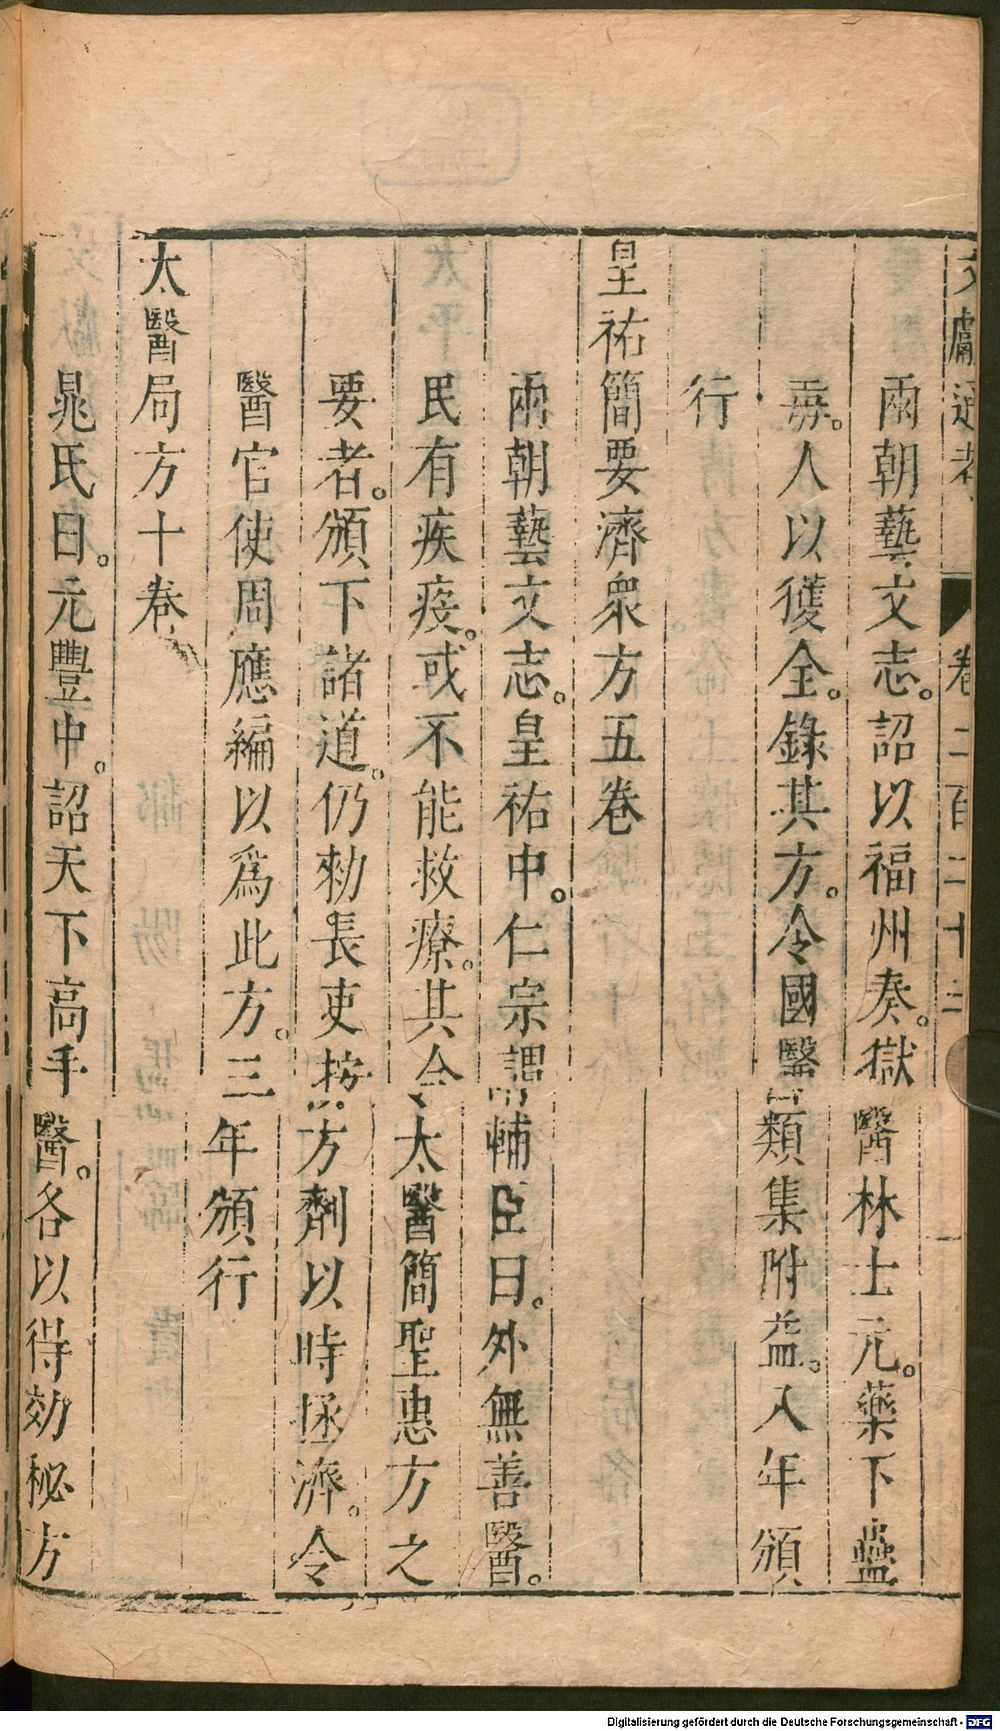 文獻通考 卷二百二十三
兩朝藝文志。詔以福州奏。獄醫林士元。藥下蠱
毒。人以獲全。錄其方。令國醫類集附益。八年頒
行
皇祐簡要濟衆方五卷
兩朝藝文志。皇祐中。仁宗謂輔臣曰。外無善醫。
民有疾疫。或不能救療。其令太醫簡聖惠方之
要者。頒下諸道。仍勑長吏按方劑以時拯濟。令
醫官使周應編以爲此方。三年頒行
太醫局方十卷
晁氏曰。元豐中。詔天下高手醫。各以得効秘方
Digitalisierung gefördert durch die Deutsche Forschungsgemeinschaft - DFG